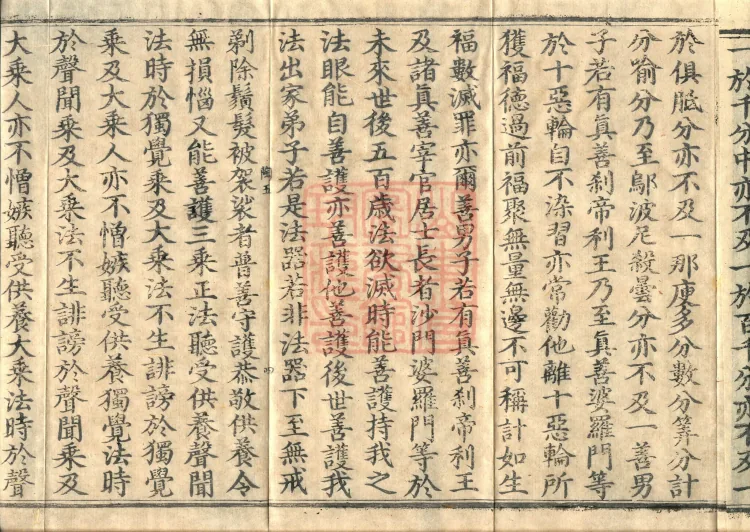 一於千分中亦不及一於百千分亦不及一
於俱胝分亦不及一那庾多分數分筭分計
分喻分乃至鄔波尼殺曇分亦不及一善男
子若有真善刹帝利王乃至真善婆羅門等
於十惡輪自不染習亦常勸他離十惡輪所
獲福德過前福聚無量無邊不可稱計如生
福數滅罪亦爾善男子若有真善刹帝利王
及諸真善宰官居士長者沙門婆羅門等於
未來世後五百歲法欲滅時能善護持我之
法眼能自善護亦善護他善護後世善護我
法出家弟子若是法器若非法器下至無戒
剃除鬚髮被袈裟者普善守護恭敬供養令
無損惱又能善護三乘正法聽受供養聲聞
法時於獨覺乘及大乘法不生誹謗於獨覺
乘及大乘人亦不憎嫉聽受供養獨覺法時
於聲聞乘及大乘法不生誹謗於聲聞乘及
大乘人亦不憎嫉聽受供養大乘法時於聲